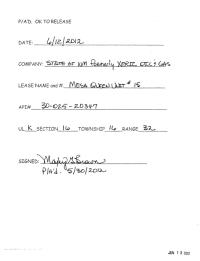 P/A'D. OK TO RELEASE
DATE: 6/12/2012
COMPANY: STATE OF NM formerly XERIC OIL & GAS
LEASE NAME and #: MESA QUEEN UNIT # 15
API# 30-025-20347
UL K SECTION 16 TOWNSHIP 16 RANGE 32
SIGNED: Mary G Brown
P/A'd. 5/30/2012
JUN 1 3 2012